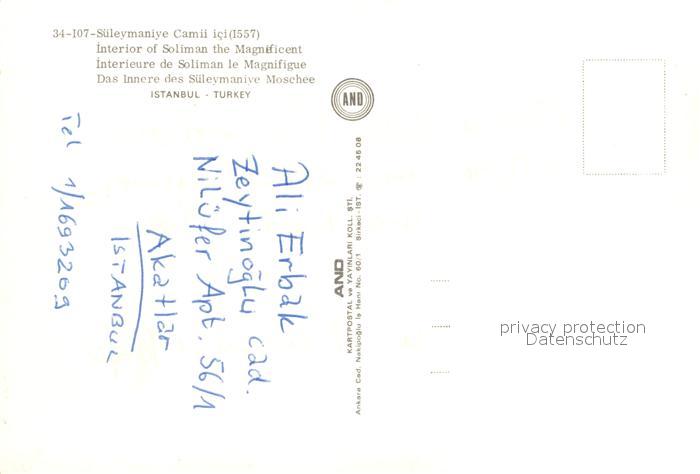 34-107-Süleymaniye Camii içi(1557)
İnterior of Soliman the Magnificent
İnterieure de Soliman le Magnifigue
Das Innere des Süleymaniye Moschee
ISTANBUL - TURKEY
AND
Ali Erbak
Zeytinoğlu cad.
Nilüfer Apt. 56/1
Akatlar
ISTANBUL
Tel 1/1693269
AND
KARTPOSTAL ve YAYINLARI KOLL. ŞTİ.
Ankara Cad. Nakipoğlu İş Hanı No. 60/1 Sirkeci-İST. ☎ : 22 45 08
privacy protection
Datenschutz